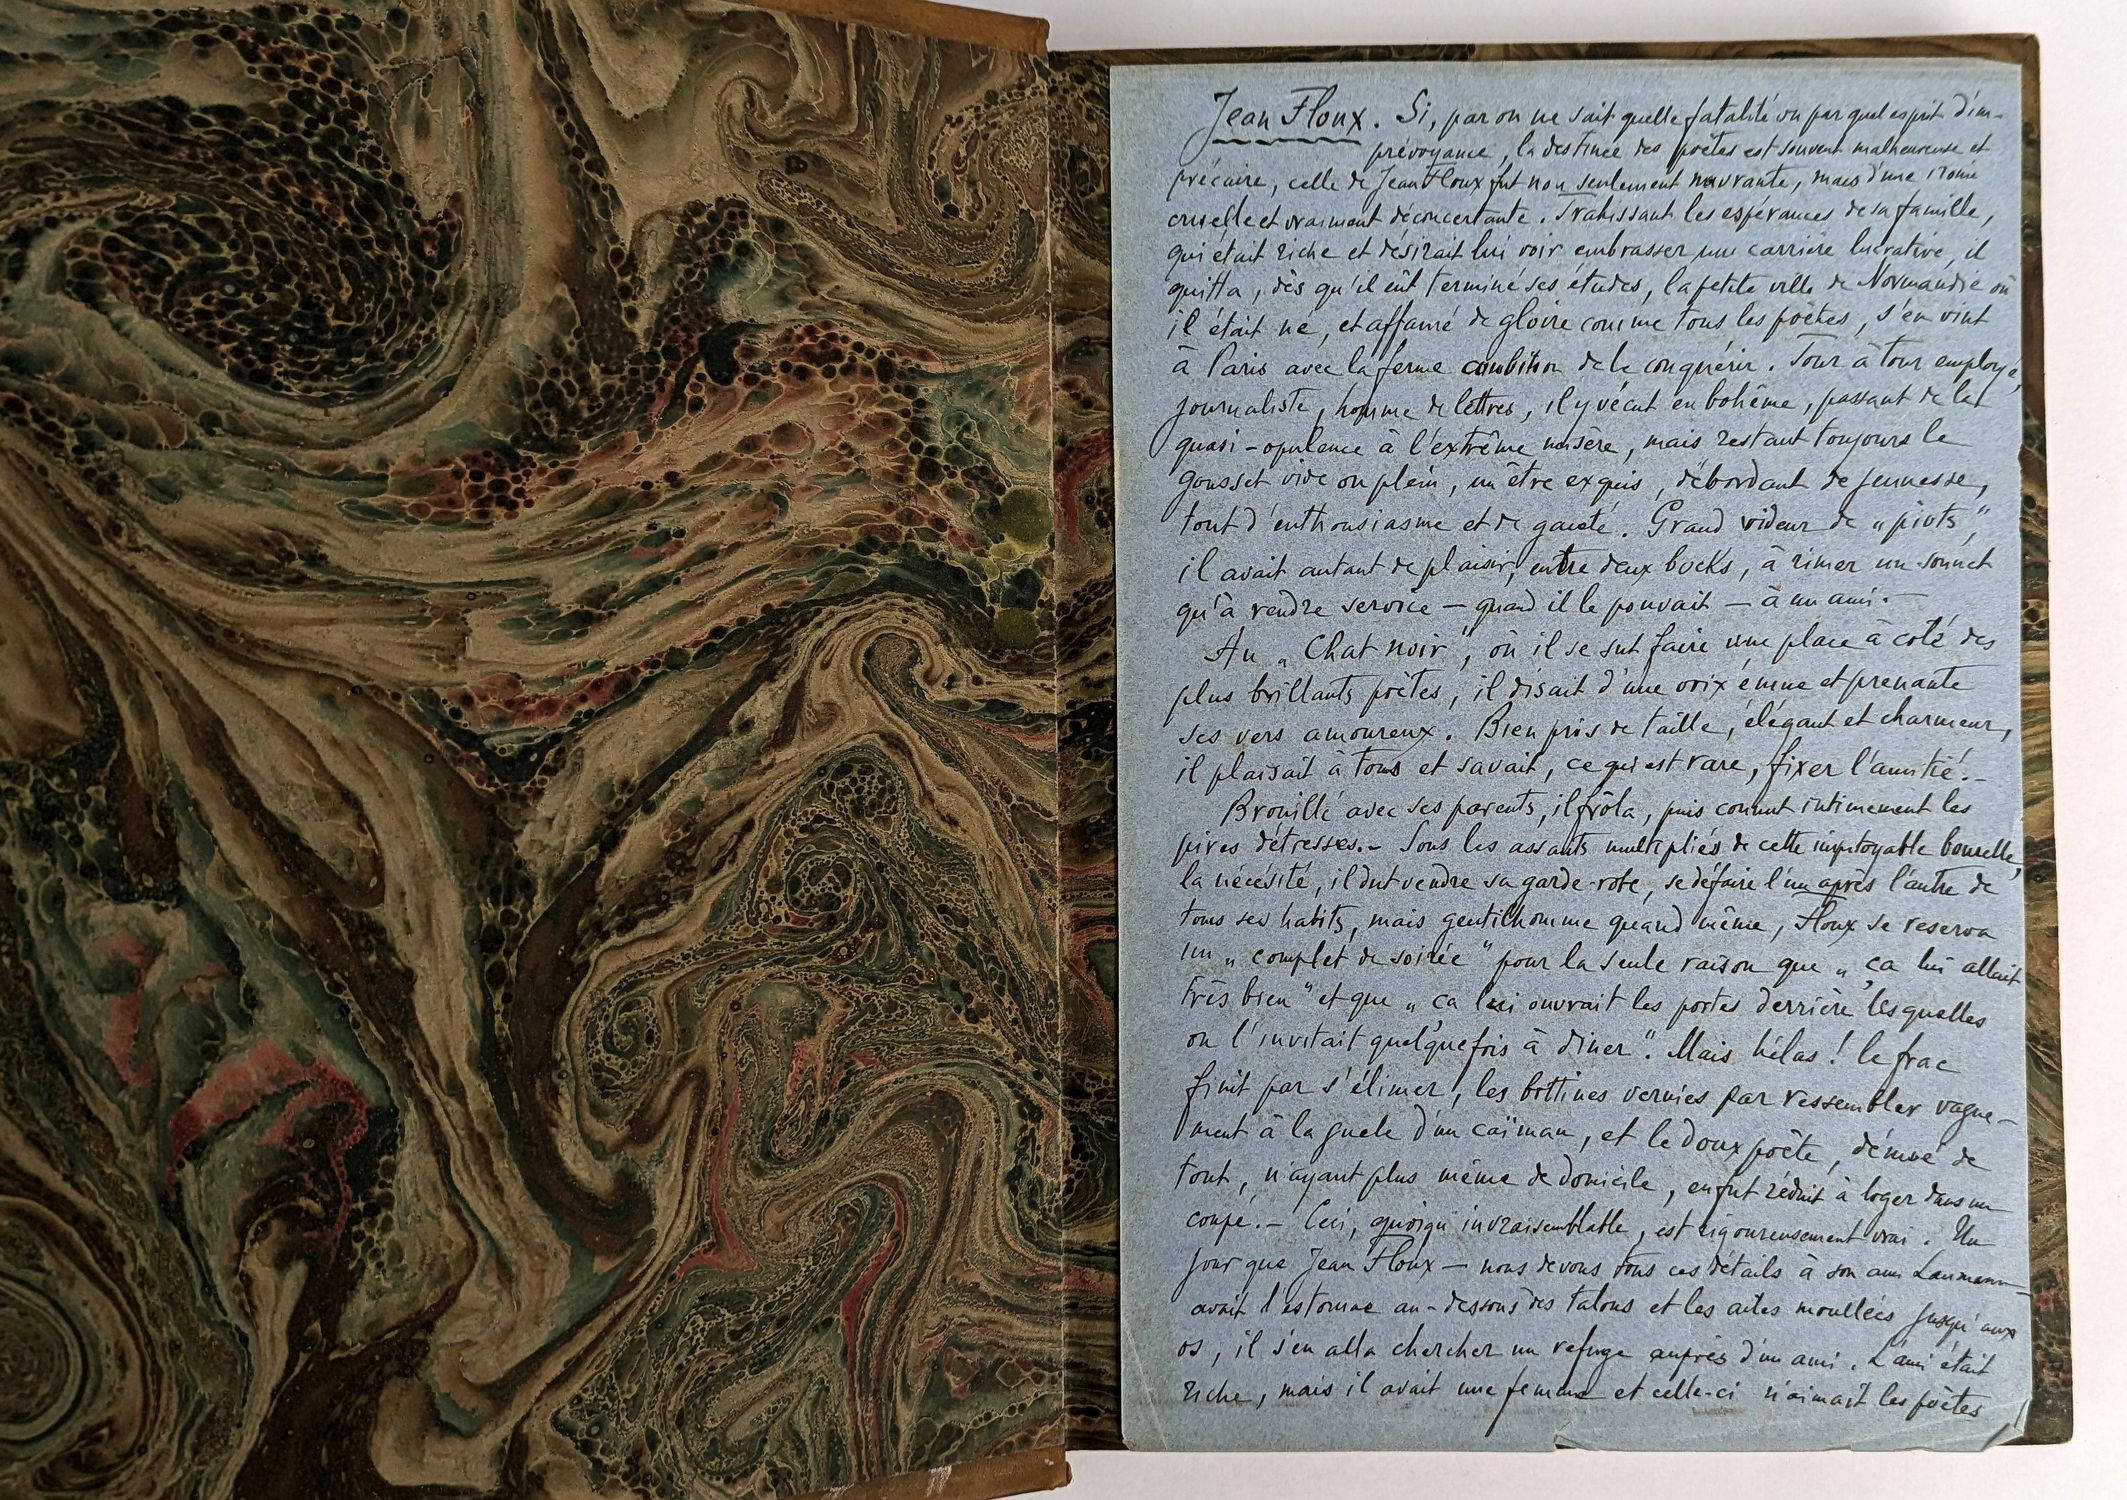 Jean Floux. Si, par on ne sait quelle fatalité ou par quel esprit d'im-
prévoyance, la destinée des poètes est souvent malheureuse et
précaire, celle de Jean Floux fut non seulement navrante, mais d'une ironie
cruelle et vraiment déconcertante. Trahissant les espérances de sa famille,
qui était riche et désirait lui voir embrasser une carrière lucrative, il
quitta, dès qu'il eût terminé ses études, la petite ville de Normandie où
il était né, et affamé de gloire comme tous les poètes, s'en vint
à Paris avec la ferme ambition de le conquérir. Tour à tour employé,
journaliste, homme de lettres, il y vécut en bohême, passant de la
quasi-opulence à l'extrême misère, mais restant toujours le
gousset vide ou plein, un être exquis, débordant de jeunesse,
tout d'enthousiasme et de gaieté. Grand videur de „piots”
il avait autant de plaisir, entre deux bocks, à rimer un sonnet
qu'à rendre service – quand il le pouvait – à un ami.–
Au „Chat noir”, où il se sut faire une place à coté des
plus brillants poètes, il disait d'une voix émue et prenante
ses vers amoureux. Bien pris de taille, élégant et charmeur,
il plaisait à tous et savait, ce qui est rare, fixer l'amitié.–
Brouillé avec ses parents, il frôla, puis connut intimement les
pires détresses.– Sous les assauts multipliés de cette impitoyable bourelle,
la nécésité, il dut vendre sa garde-robe, se défaire l'un après l'autre de
tous ses habits, mais gentilhomme quand même, Floux se reserva
un „complet de soirée” pour la seule raison que „ça lui allait
très bien” et que „ça lui ouvrait les portes derrière lesquelles
on l'invitait quelquefois à diner”. Mais hélas! le frac
finit par s'élimer, les bottines vernies par ressembler vague-
ment à la guele d'un caïman, et le doux poète, démué de
tout, n'ayant plus même de domicile, en fut réduit à loger dans un
coupé.– Ceci, quoiqu'invraisemblable, est rigoureusement vrai. Un
jour que Jean Floux – nous devons tous ces détails à son ami Laumann –
avait l'estomac au-dessous des talons et les ailes mouillées jusqu'aux
os, il s'en alla chercher un refuge auprès d'un ami. L'ami était
riche, mais il avait une femme et celle-ci n'aimait les poètes